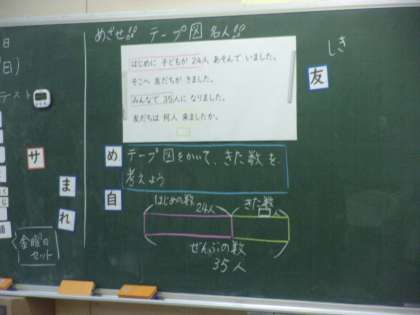 めざせ!! テープ図名人!!
はじめに 子どもが 24人 あそんで いました。
そこへ 友だちが きました。
みんなで 35人に なりました。
友だちは 何人 来ましたか。
しき
友
め
テープ図をかいて、きた数を
考えよう
自
はじめの数
24人
きた数
人
ぜんぶの数
35人
日
テスト
サ
ま
れ
金曜日
セット